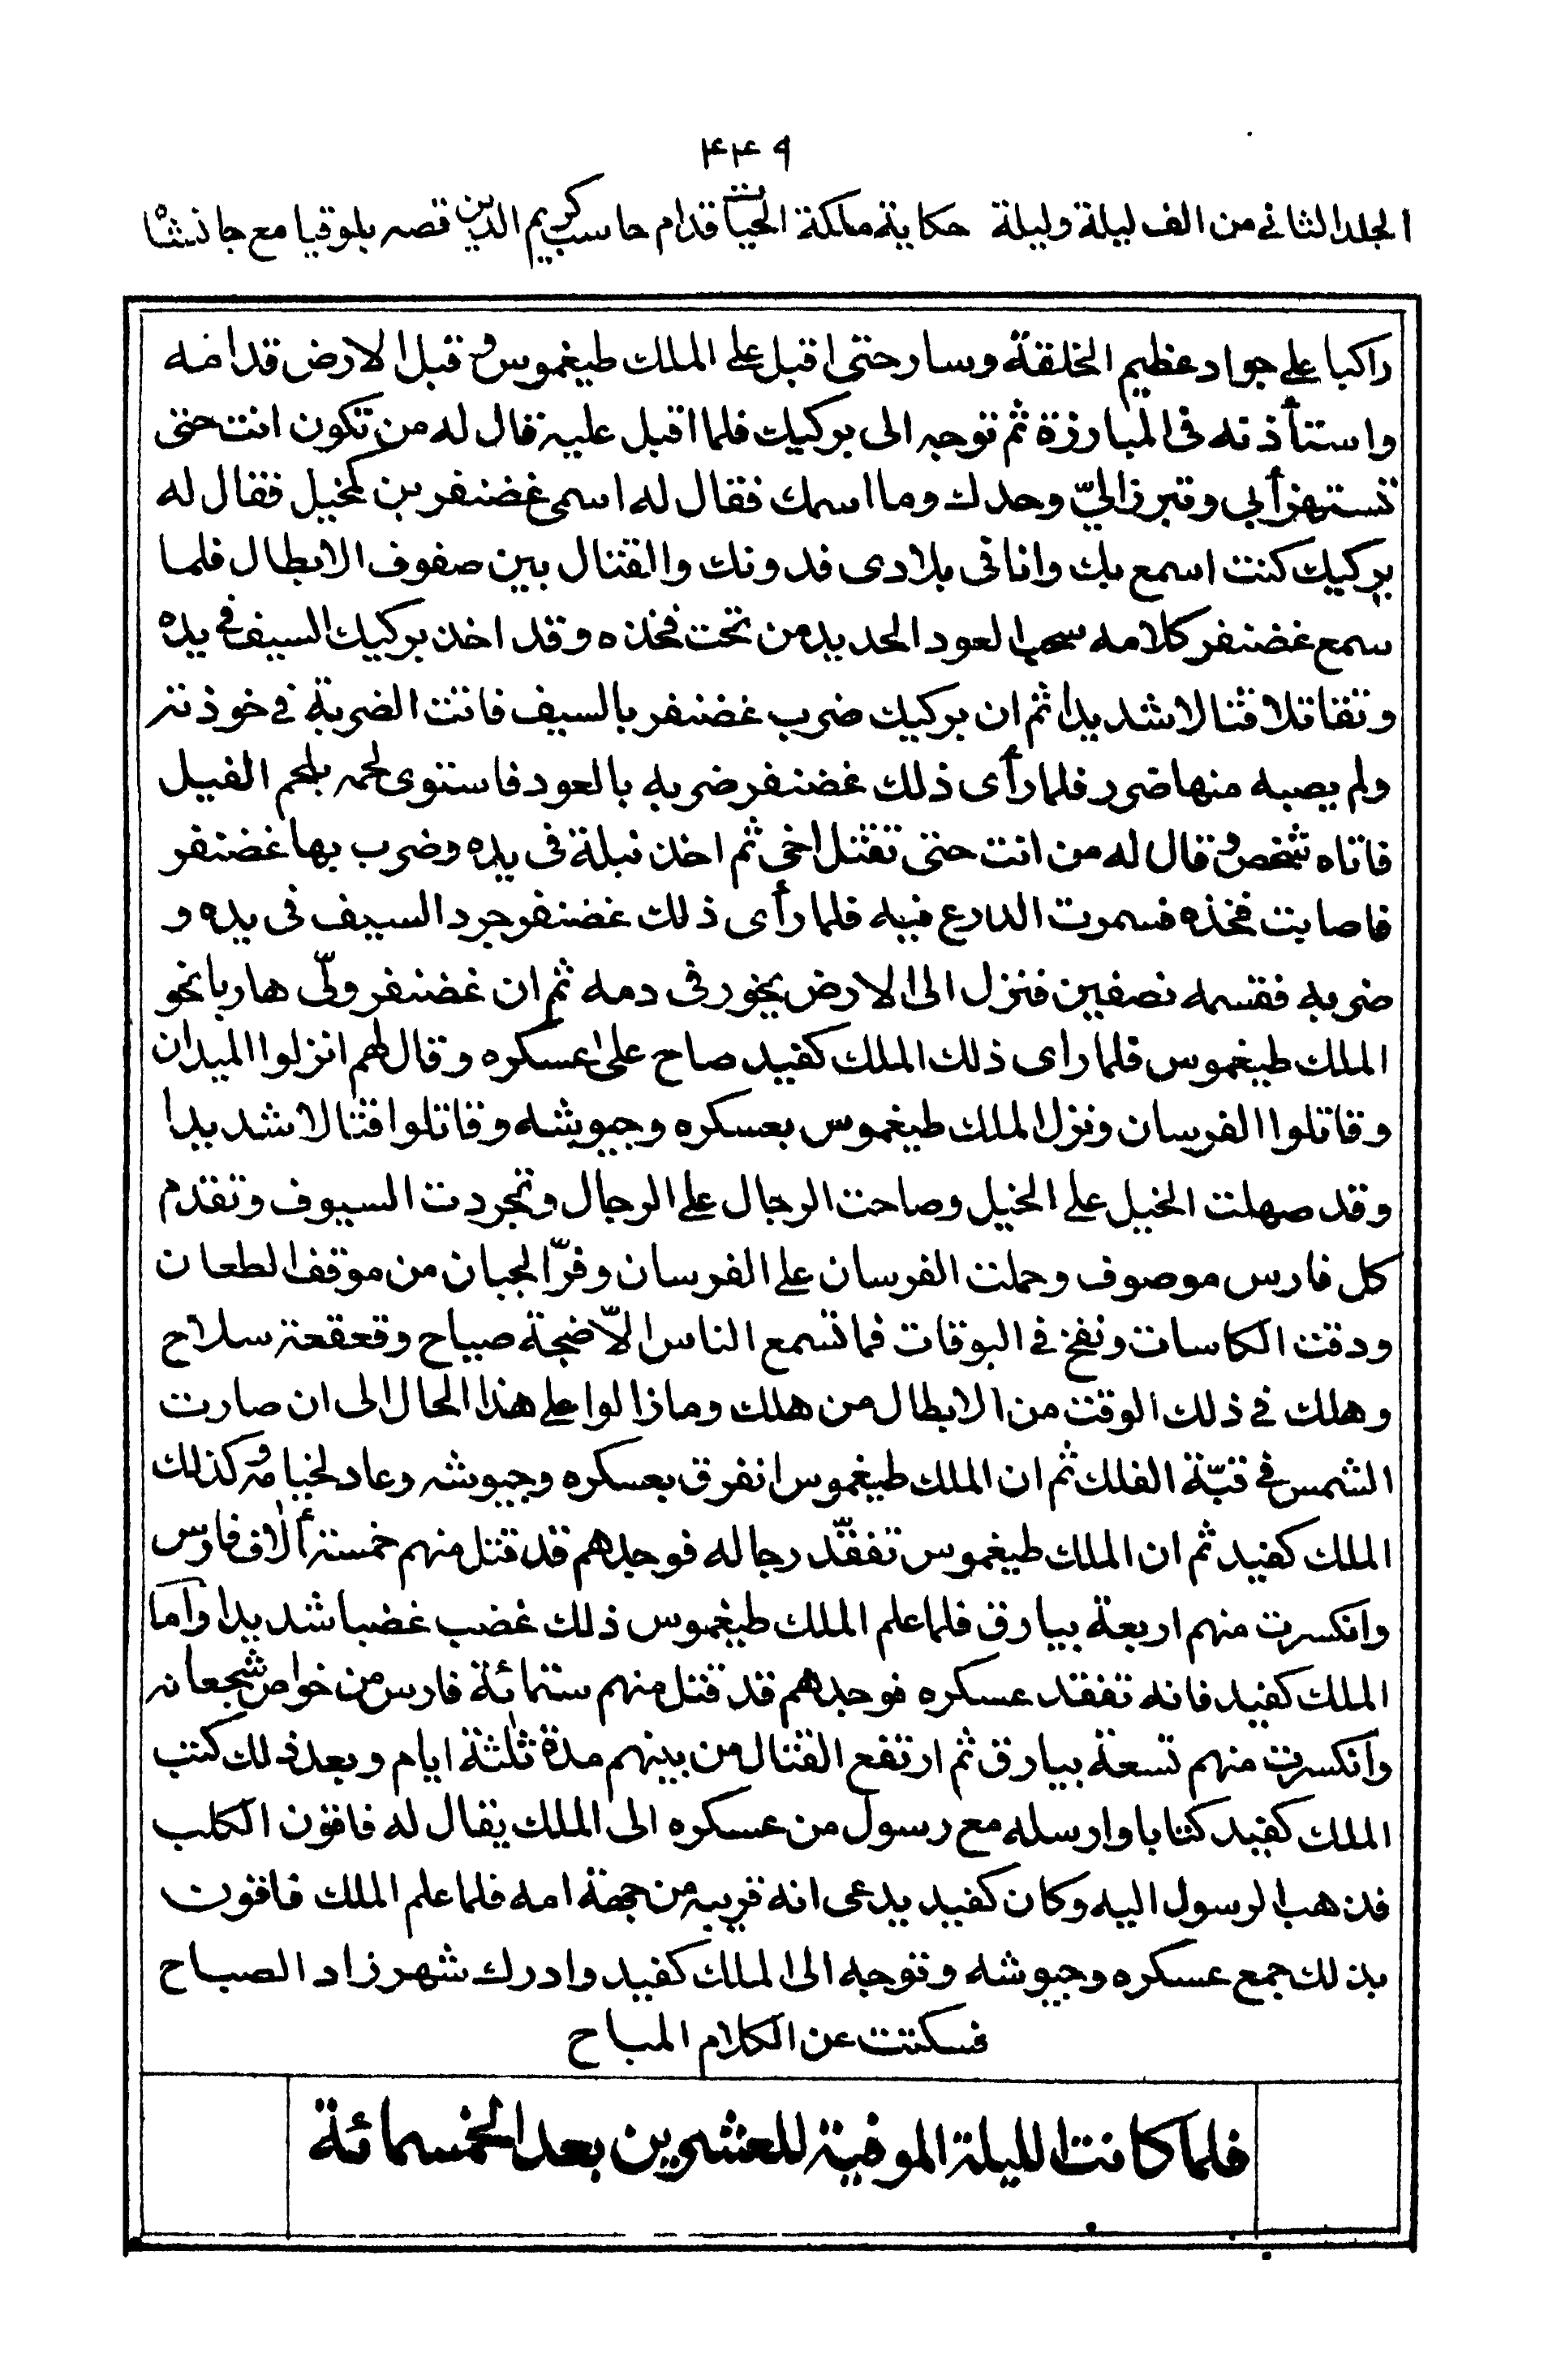 ۴۴۹
الجلد الثاني من الف ليلة وليلة حكاية ملكة الحيات قدام حاسب كريم الدين قصه بلوقيا مع جانشاه
راكبا على جواد عظيم الخلقة وسار حتى اقبل على الملك طيغموس و قبل الارض قدامه
واستأذنه فى المبارزة ثم توجه الى بركيك فلما اقبل عليه قال له من تكون انت حتى
تستهزأبي وتبرز اليّ وحدك وما اسمك فقال له اسمى غضنفر بن كخيل فقال له
بركيك كنت اسمع بك وانا فى بلادى فدونك والقتال بين صفوف الابطال فلما
سمع غضنفر كلامه سحب العود الحديد من تحت فخذه وقد اخذ بركيك السيف في يده
وتقاتلا قتالا شديدا ثم ان بركيك ضرب غضنفر بالسيف فاتت الضربة في خوذته
ولم يصبه منها ضرر فلما رأى ذلك غضنفر ضربه بالعود فاستوى لحمه بلحم الفيل
فاتاه شخص و قال له من انت حتى تقتل اخى ثم اخذ نبلة فى يده وضرب بها غضنفر
فاصابت فخذه فسمرت الدرع فيه فلما رأى ذلك غضنفر جرد السيف فى يده و
ضربه فقسمه نصفين فنزل الى الارض يخور فى دمه ثم ان غضنفر ولّى هاربا نحو
الملك طيغموس فلما راى ذلك الملك كفيد صاح على عسكره وقال لهم انزلوا الميدان
وقاتلوا الفرسان ونزل الملك طيغموس بعسكره وجيوشه وقاتلوا قتالا شديدا
وقد صهلت الخيل على الخيل وصاحت الرجال على الرجال وتجردت السيوف وتقدم
كل فارس موصوف وحملت الفرسان على الفرسان وفرّ الجبان من موقف الطعان
ودقت الكاسات ونفخ في البوقات فما تسمع الناس الّا ضجة صياح وقعقعة سلاح
وهلك في ذلك الوقت من الابطال من هلك وما زالوا على هذا الحال الى ان صارت
الشمس في قبّة الفلك ثم ان الملك طيغموس انفرق بعسكره وجيوشه وعاد لخيامه و كذلك
الملك كفيد ثم ان الملك طيغموس تفقّد رجاله فوجدهم قد قتل منهم خمسة ألاف فارس
وانكسرت منهم اربعة بيارق فلما علم الملك طيغموس ذلك غضب غضبا شديدا واما
الملك كفيد فانه تفقد عسكره فوجدهم قد قتل منهم ستمائة فارس من خواص شجعانه
وانكسرت منهم تسعة بيارق ثم ارتفع القتال من بينهم مدة ثلثة ايام وبعد ذلك كتب
الملك كفيد كتابا وارسله مع رسول من عسكره الى الملك يقال له فاقون الكلب
فذهب الرسول اليه وكان كفيد يدعى انه قريبه من جهة امه فلما علم الملك فاقون
بذلك جمع عسكره وجيوشه وتوجه الى الملك كفيد وادرك شهرزاد الصباح
فسكتت عن الكلام المباح
فلما كانت الليلة الموفية للعشرين بعد الخمسمائة